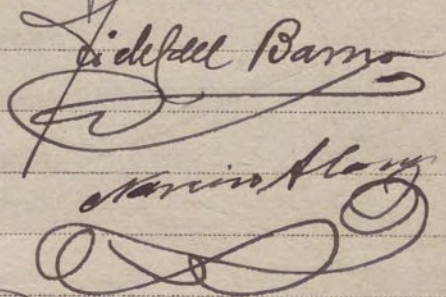 Fidel del Barrio
Narciso Alonso